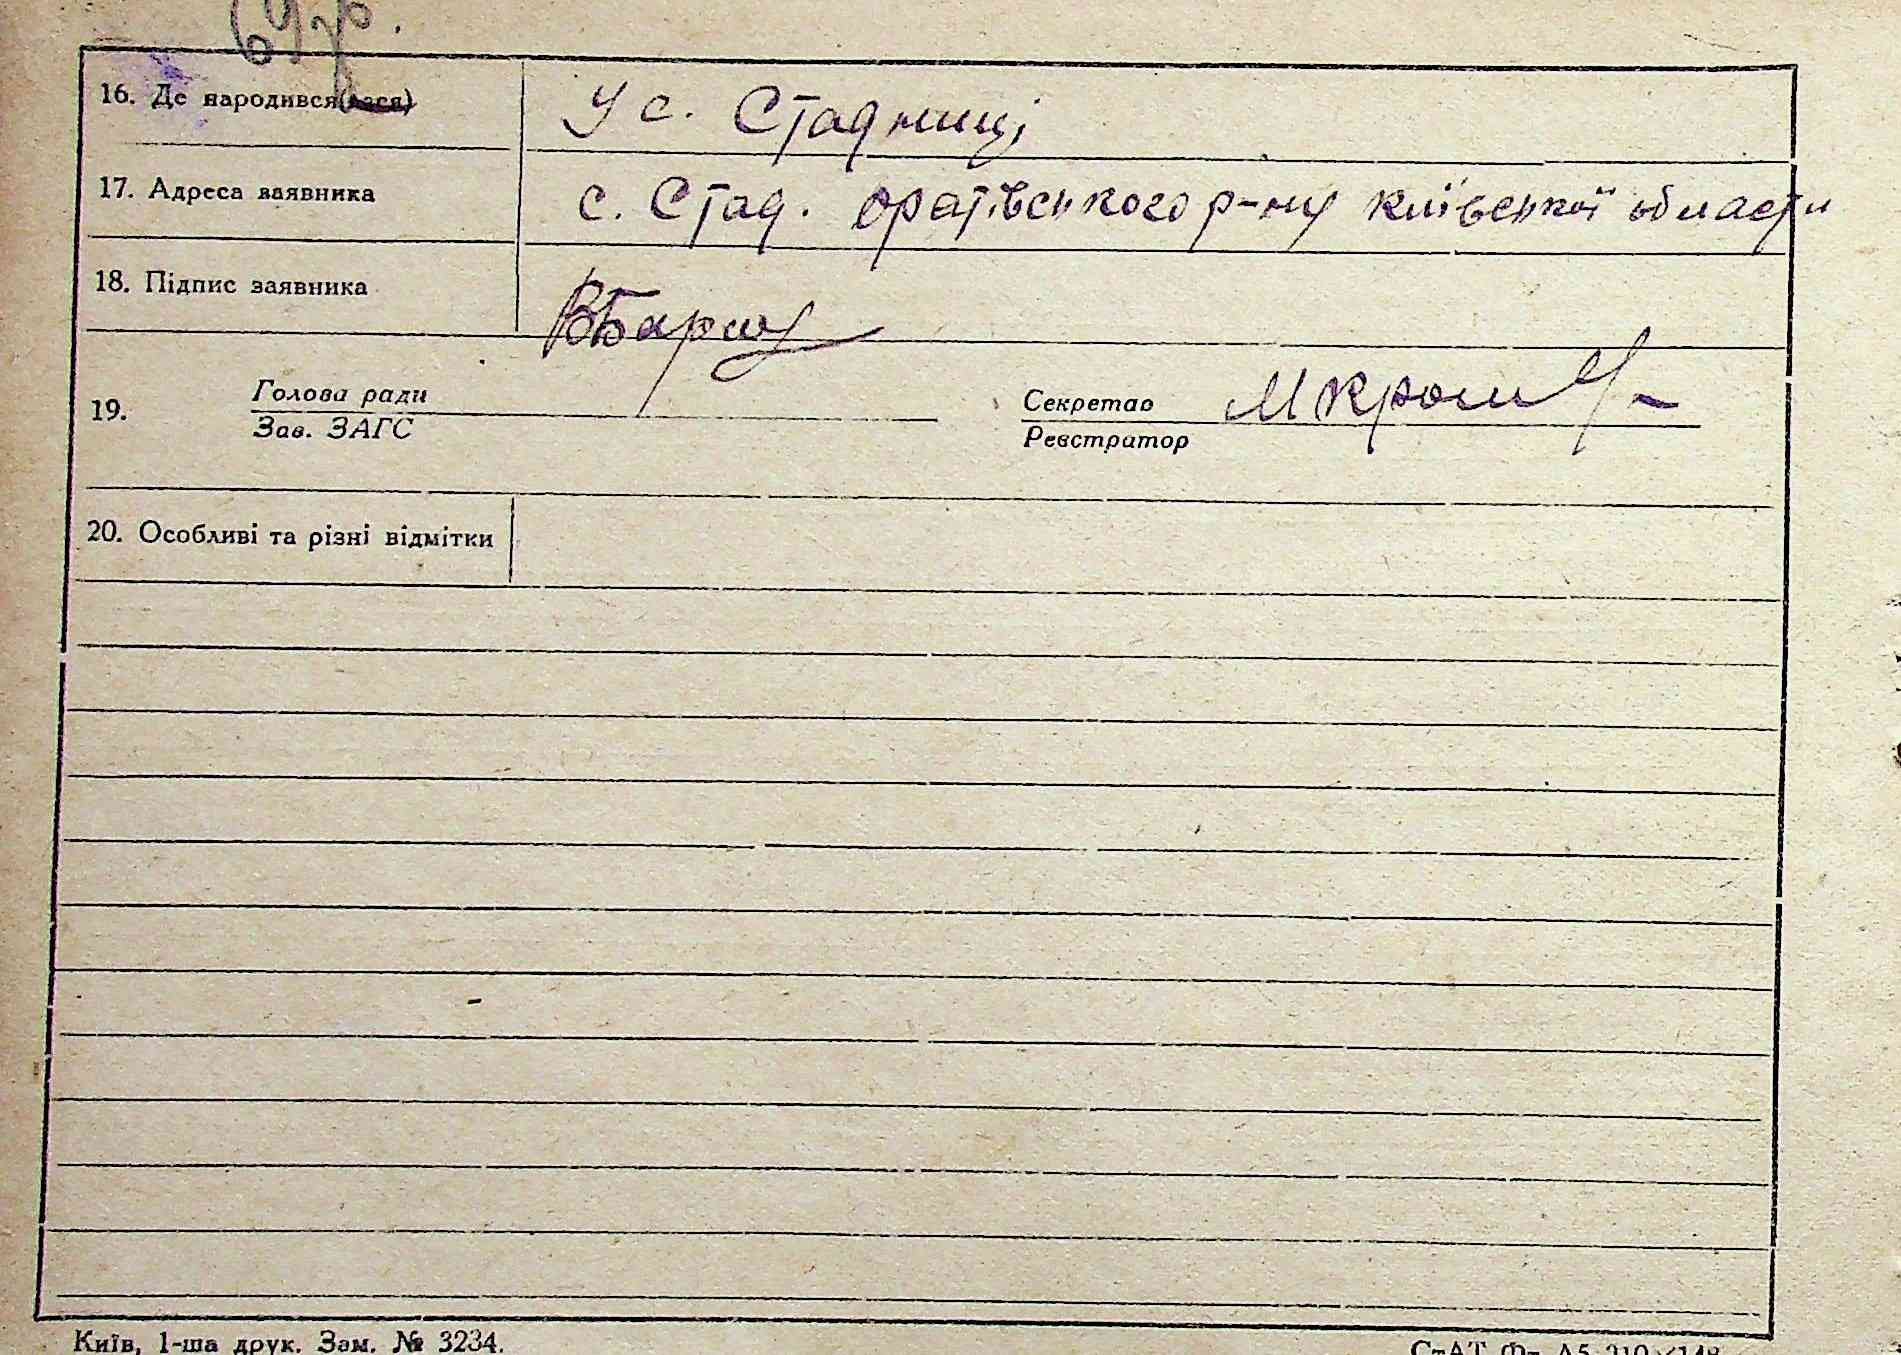 69 р.
16. Де народився(лася) У с. Стадниці
17. Адреса заявника с. Стад. оратівського р-ну київської области
18. Підпис заявника
19. Голова ради Секретар
Зав. ЗАГС Реєстратор
20. Особливі та різні відмітки
Київ, 1-ша друк. Зам. № 3234. СтАТ Ф. А5 210×148